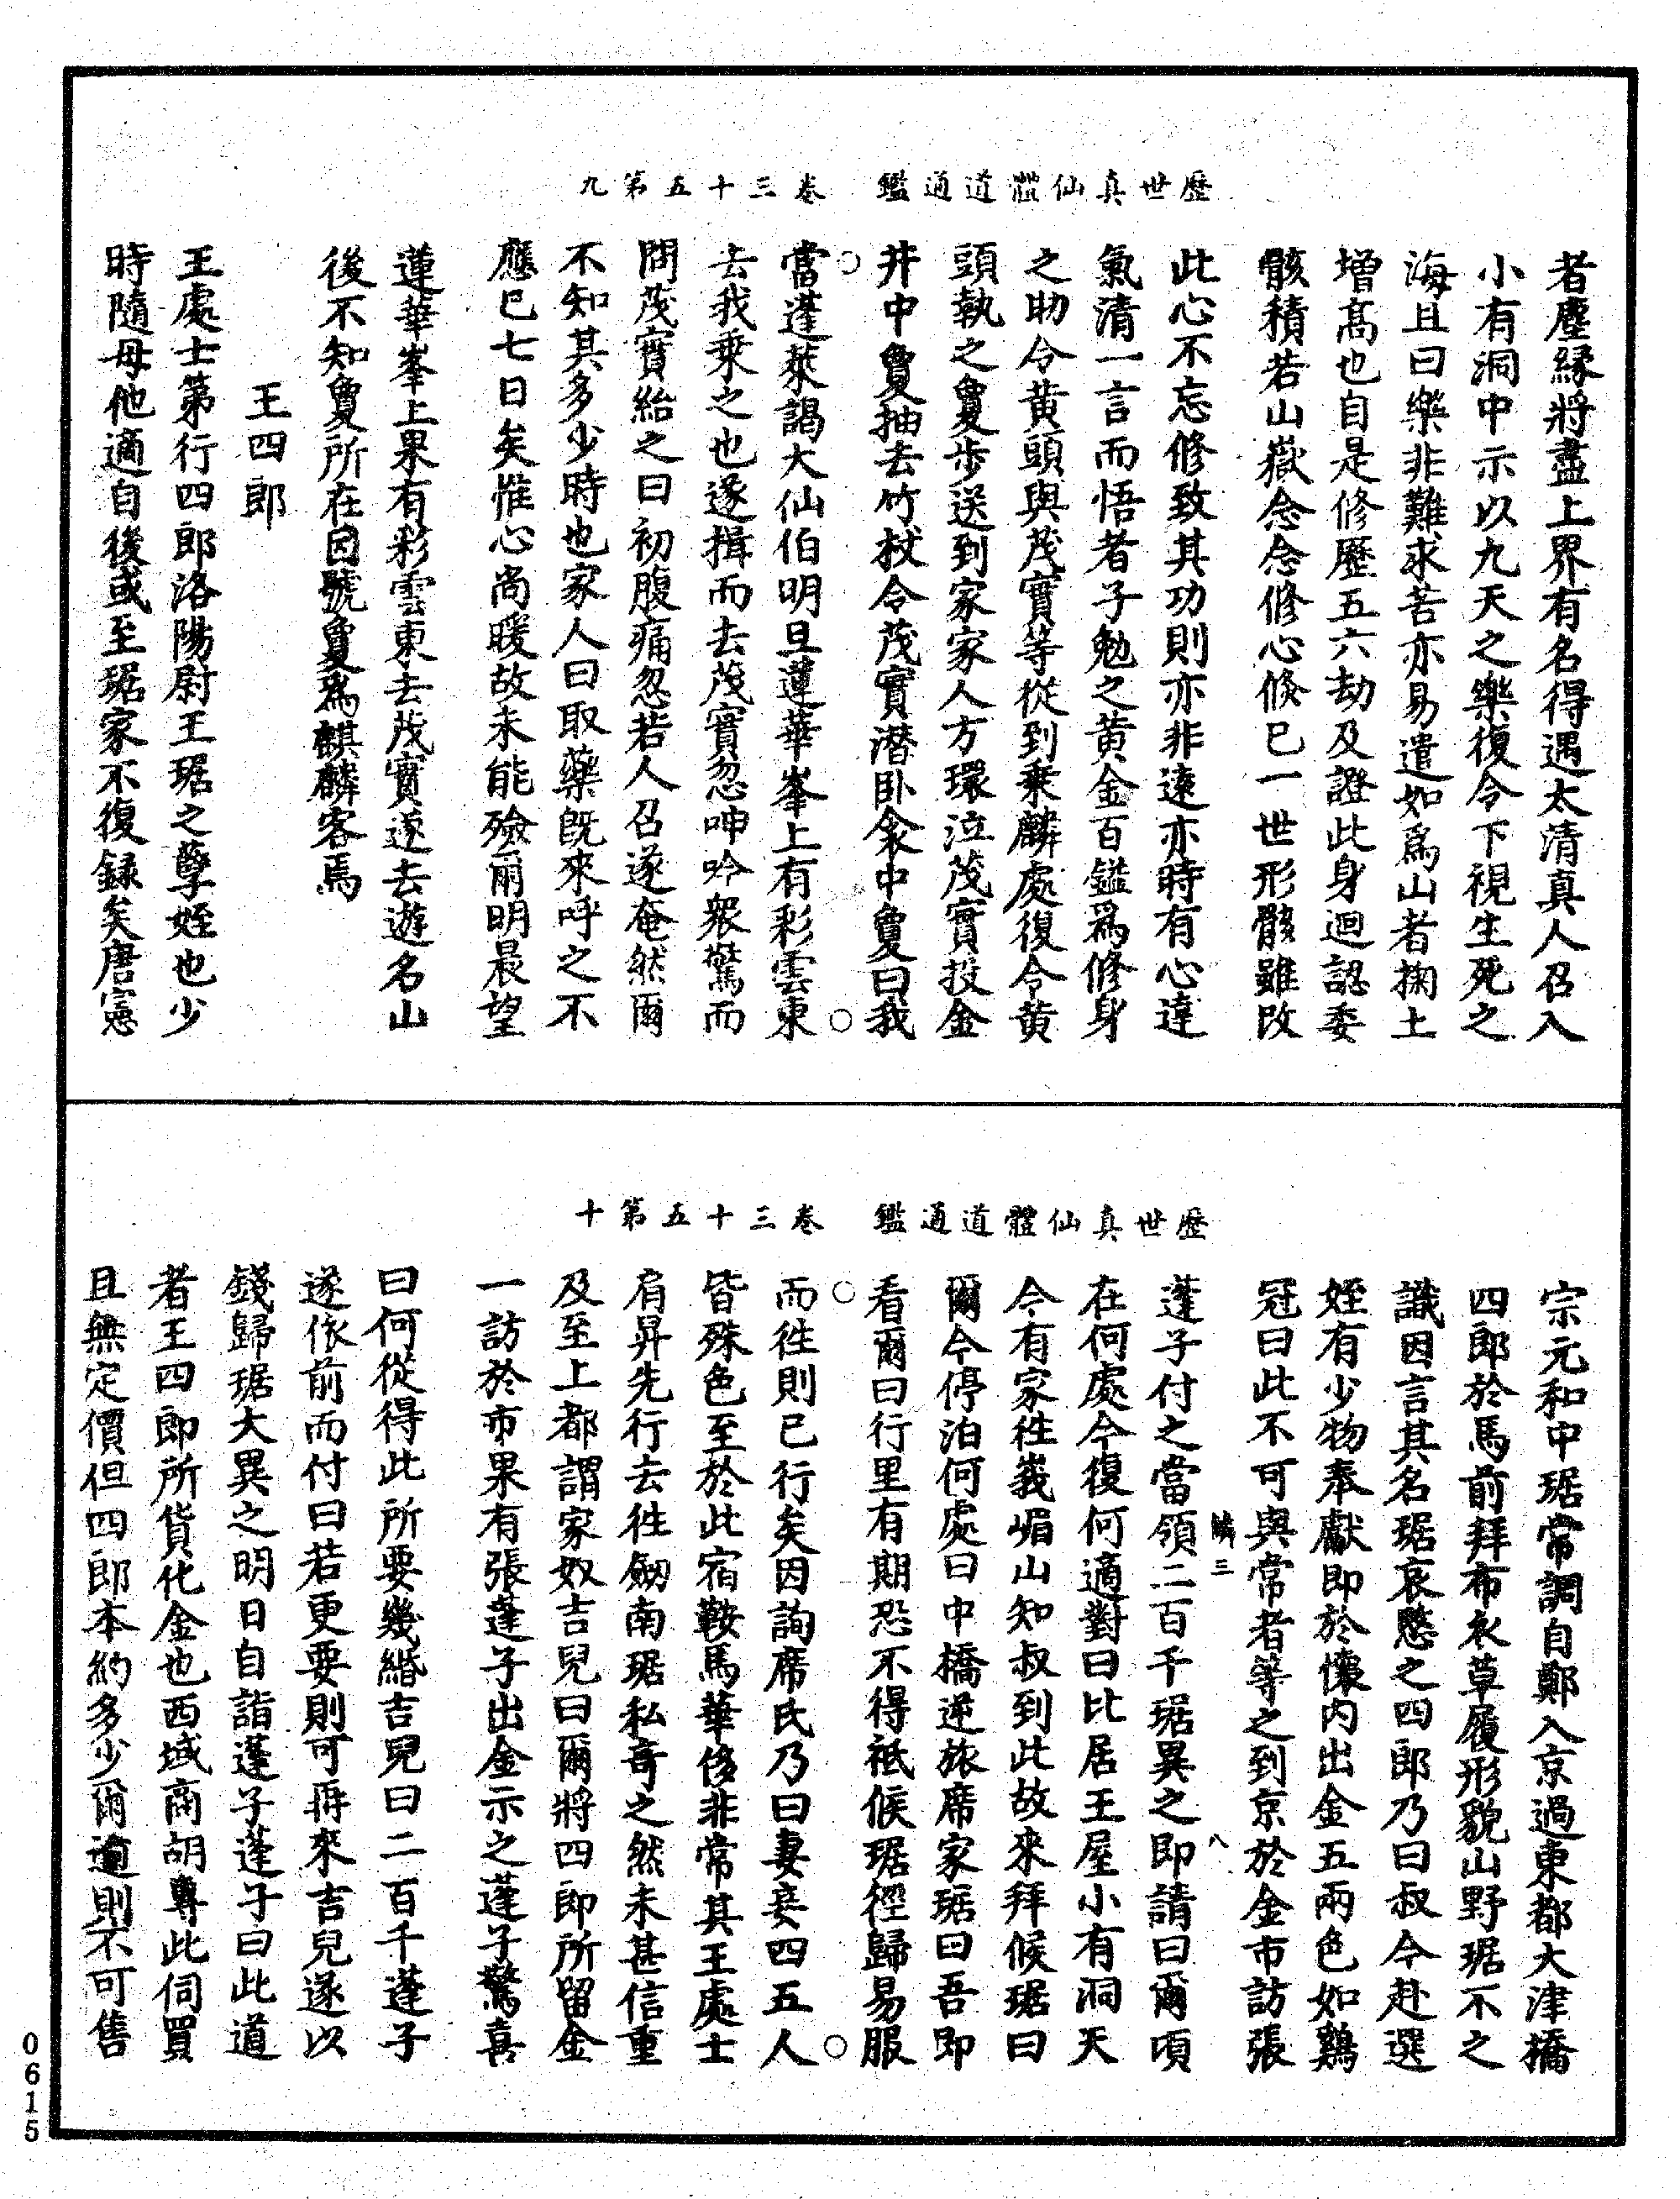 歷世真仙體道通鑑　卷三十五第九
者塵縁將盡上界有名得遇太清真人召入
小有洞中示以九天之樂復令下視生死之
海且曰樂非難求苦亦易遣如爲山者掬土
增髙也自是修歷五六劫及證此身迴認委
骸積若山嶽念念修心倐已一世形骸雖改
此心不忘修致其功則亦非遠亦時有心達
氣清一言而悟者子勉之黄金百鎰爲修身
之助令黄頭與茂實等從到乗麟處復令黄
頭執之敻步送到家家人方環泣茂實投金
井中敻抽去竹杖令茂實潛卧衾中敻曰我
當蓬萊謁大仙伯明旦蓮華峯上有彩雲東
去我乗之也遂揖而去茂實忽呻吟衆驚而
問茂實紿之曰初腹痛忽若人召遂奄然爾
不知其多少時也家人曰取藥旣來呼之不
應已七日矣惟心尚暖故未能殮爾明晨望
蓮華峯上果有彩雲東去茂實遂去遊名山
後不知敻所在因號敻爲麒麟客焉
王四郎
王處士第行四郎洛陽尉王琚之孽姪也少
時隨母他適自後或至琚家不復録矣唐憲
歷世真仙體道通鑑　卷三十五第十
宗元和中琚常調自鄭入京過東都大津橋
四郎於馬前拜布衣草履形貌山野琚不之
識因言其名琚哀愍之四郎乃曰叔今赴選
姪有少物奉獻即於懷内出金五兩色如鷄
冠曰此不可與常者等之到京於金市訪張
蓬子付之當領二百千琚異之即請曰爾頃
在何處今復何適對曰比居王屋小有洞天
今有家徃峩嵋山知叔到此故來拜候琚曰
爾今停泊何處曰中橋逆旅席家琚曰吾即
看爾曰行里有期恐不得祗候琚徑歸易服
而徃則已行矣因詢席氏乃曰妻妾四五人
皆殊色至於此宿鞍馬華侈非常其王處士
肩舁先行去徃劒南琚私奇之然未甚信重
及至上都謂家奴吉兒曰爾將四郎所留金
一訪於市果有張蓬子出金示之蓬子驚喜
曰何從得此所要幾緡吉兒曰二百千蓬子
遂依前而付曰若更要則可再來吉兒遂以
錢歸琚大異之明日自詣蓬子蓬子曰此道
者王四郎所貨化金也西域商胡專此伺買
且無定價但四郎本約多少爾逾則不可售
麟三
八
0615